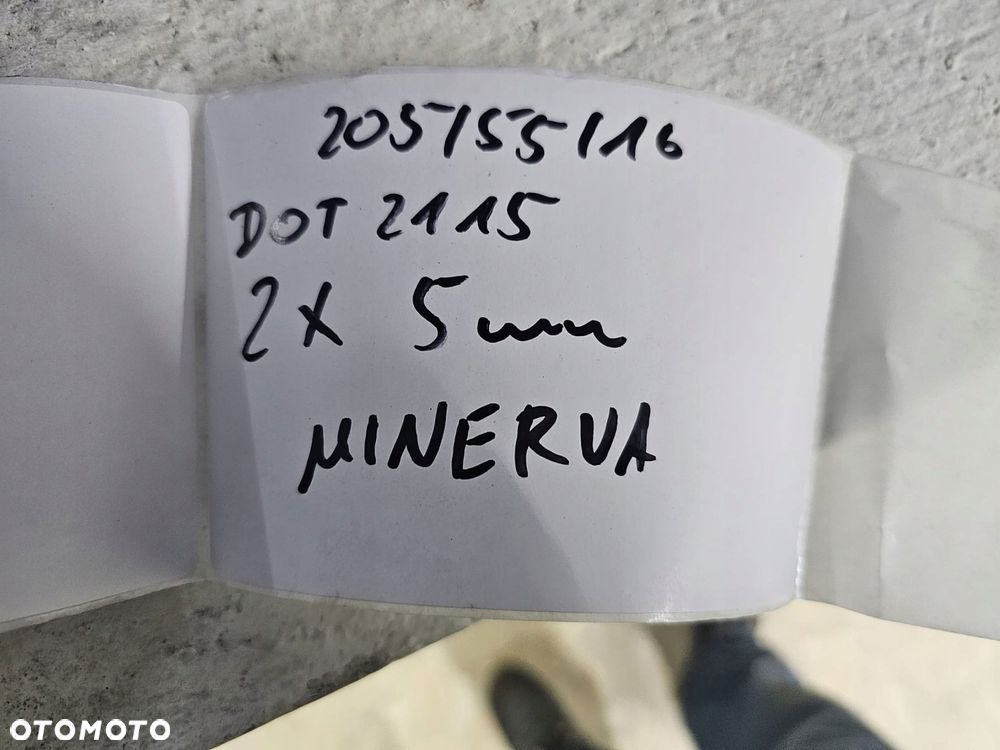 205/55/16
DOT 2115
2X 5mm
MINERVA
OTOMOTO